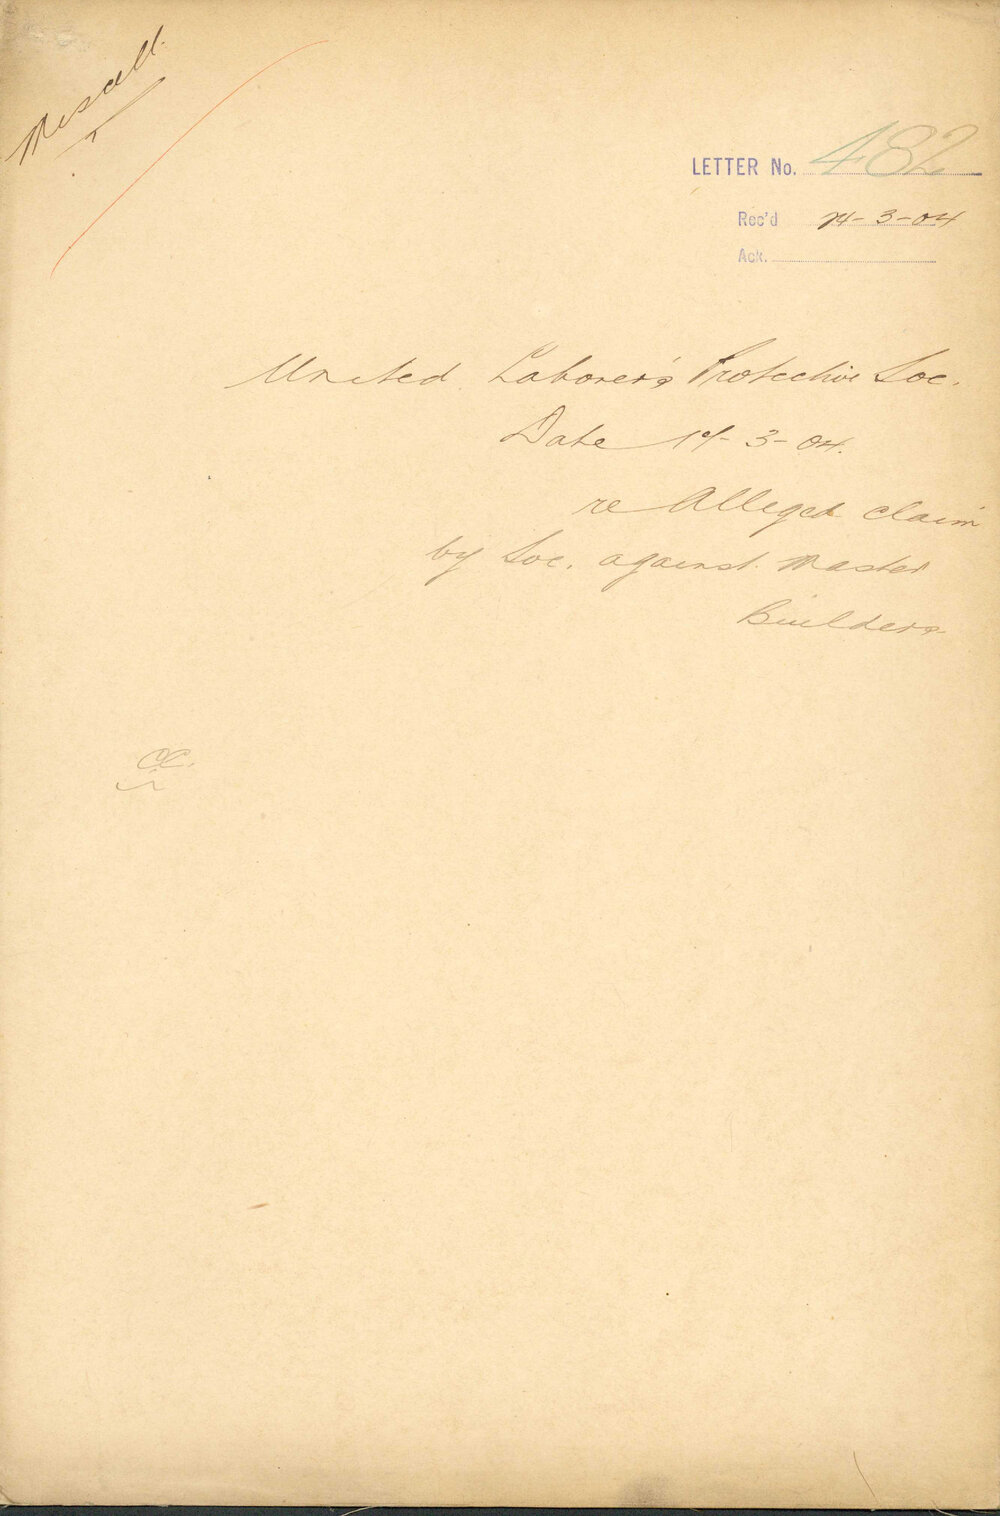 Miscell.
LETTER No. 482
Rec'd 14-3-04
Ack.
United Laborers Protective Soc.
Date 14-3-04.
re Alleged claim
by Soc. against Master
Builders
CC.